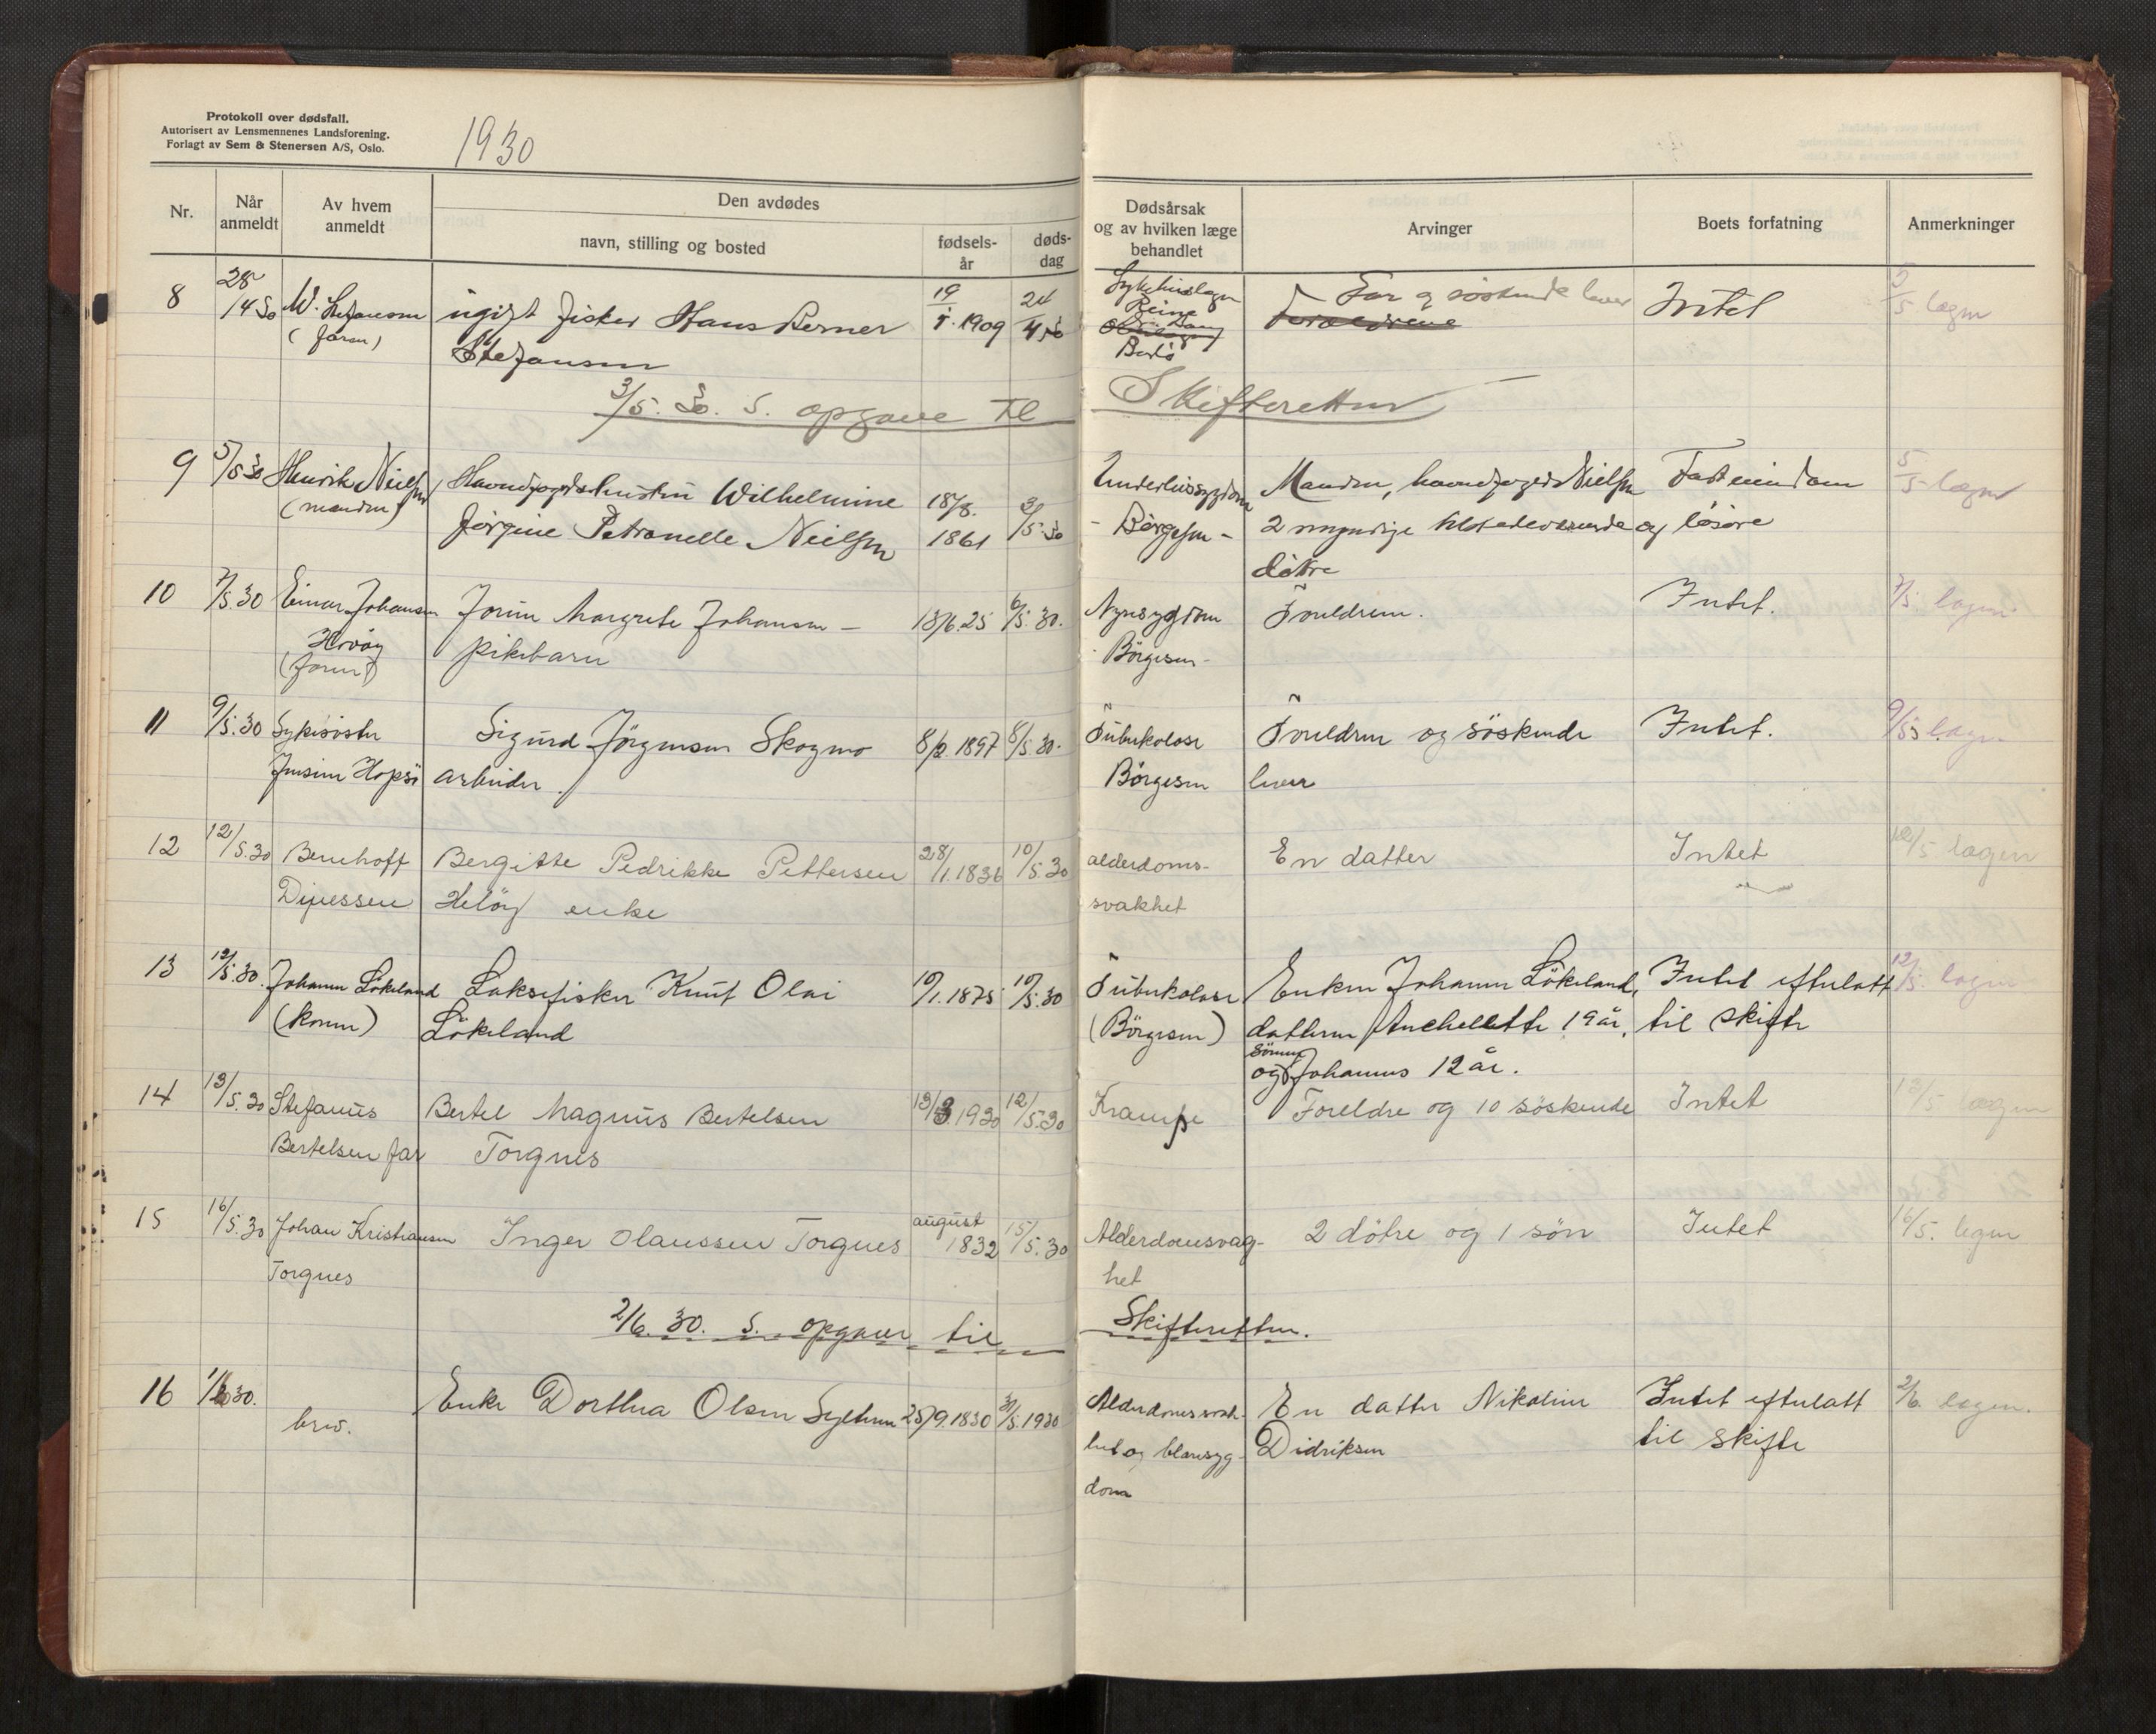 Protokoll over dødsfall.
Autorisert av Lensmennenes Landsforening.
Forlagt av Sem & Stenersen A/S, Oslo.
1930
Nr.
Når anmeldt
Av hvem anmeldt
Den avdødes
navn, stilling og bosted
fødsels-
år
døds-
dag
Dødsårsak
og av hvilken læge
behandlet
Arvinger
Boets forfatning
Anmerkninger
8 28/4 30 W. Stefansen ugift fisker Hans Berner 19/ 1909 24/4 30 Sykehuslægen Far og søskende lever Intet 5/5 lægen
(faren) Stefansen Bodø
3/5. 30. S. opgave til Skifteretten
9 5/5 30 Henrik Nielsen Havnefogedshustru Wilhelmine 18/8. Underlivssygdom Manden, havnefoged Nielsen Fast eiendom 5/5 lægen
(manden) Jørgine Petronelle Nielsen 1861 3/5 30 - Börgesen - 2 myndige tilstedeværende og løsøre
døtre
10 7/5.30 Einar Johansen Jorun Margrete Johansen - 13/6.25 6/5.30. Nyresygdom Foreldrene. Intet. 7/5. lægen
Hevöy pikebarn Börgesen -
(faren)
11 9/5.30 Sykesöster Sigurd Jörgensen Skogmo 8/2 1897 8/5 30. Tuberkolose Foreldrene og söskende Intet. 9/5 lægen
Jensine Hopsö arbeider. Börgesen lever
12 12/5.30 Bernhoff Bergitte Pedrikke Pettersen 28/1.1836 10/5.30 alderdoms- En datter Intet 12/5 lægen
Dinessen Helöy enke svakhet
13 12/5.30. Johanne Lökeland Laksefisker Knut Olai 10/1.1875 10/5.30 Tuberkolose Enken Johanne Lökeland, Intet efterlatt 12/5. lægen
(konen) Lökeland (Börgesen) datteren Anchellette 19 år, til skifte
sönnen
og Johannes 12 år.
14 13/5.30 Stefanus Bertel Magnus Bertelsen 13/3.1930 12/5.30 Krampe Foreldre og 10 söskende Intet 13/5 lægen
Bertelsen far Torgnes
15 16/5.30 Johan Kristiansen Inger Olaussen Torgnes august 1832 15/5.30 Alderdomsvag- 2 dötre og 1 sön Intet 16/5. legen
Torgnes het
2/6.30. S. opgaver til Skifteretten.
16 1/6 30. Enke Dorthea Olsen Sylteren 25/9.1830 31/5.1930 Alderdomssvak- En datter Nikoline Intet efterlatt 2/6. lægen.
brev. het og blæresyg- Didriksen til skifte
dom